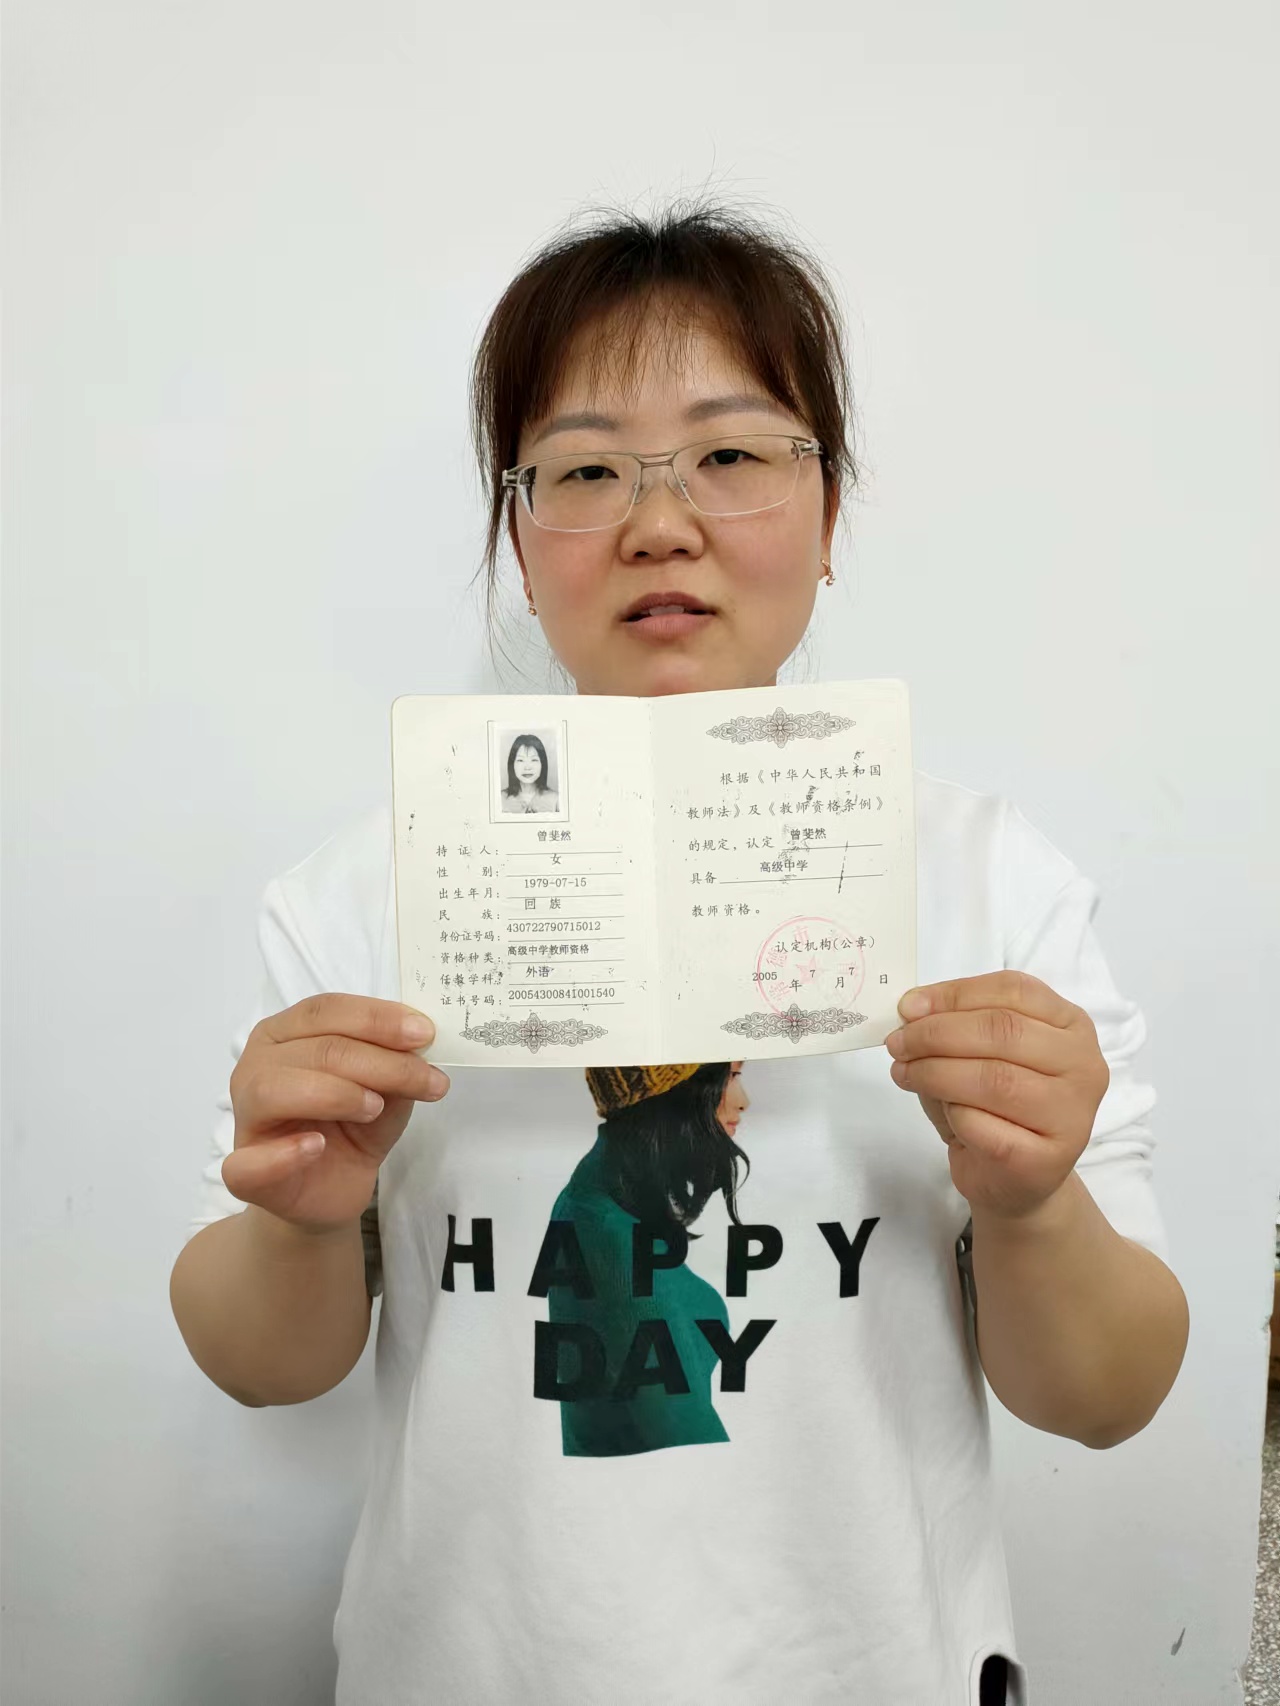 曾斐然
持证人：
女
性别：
1979-07-15
出生年月：
回 族
民族：
430722790715012
身份证号码：
高级中学教师资格
资格种类：
外语
任教学科：
20054300841001540
证书号码：
根据《中华人民共和国
教师法》及《教师资格条例》
的规定，认定 曾斐然
具备 高级中学
教师资格。
认定机构(公章)
2005 年 7 月 7 日
HAPPY
DAY